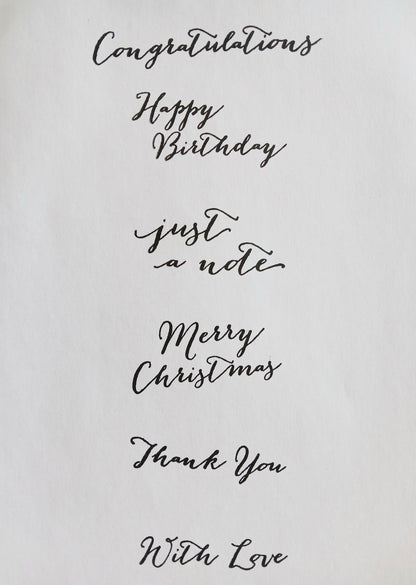 Congratulations
Happy
Birthday
just
a note
Merry
Christmas
Thank You
With Love